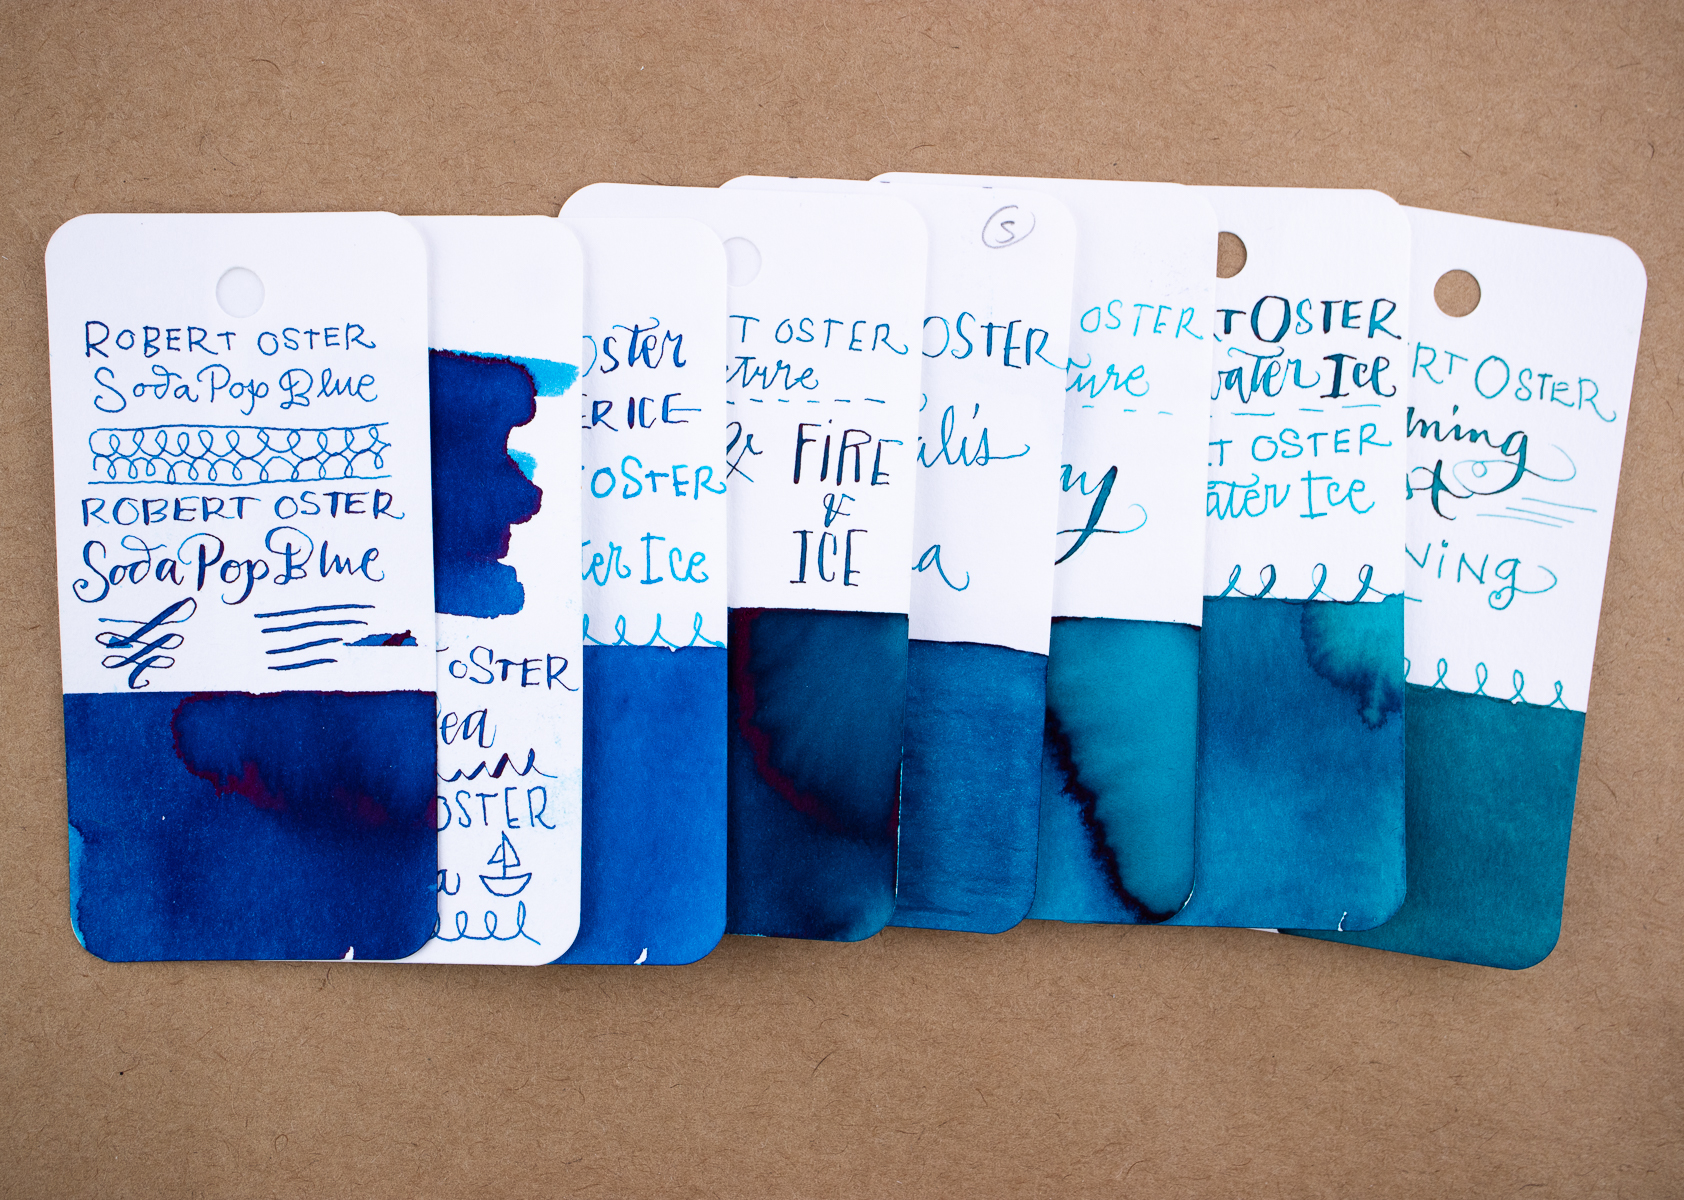 ROBERT OSTER
Soda Pop Blue
ROBERT OSTER
Soda Pop Blue
OSTER
ea
OSTER
a
Oster
ER ICE
OSTER
ter Ice
T OSTER
cture
& FIRE
&
ICE
S
OSTER
alis
a
OSTER
ure
ay
T OSTER
water Ice
RT OSTER
ater Ice
ERT OSTER
ning
st
NING